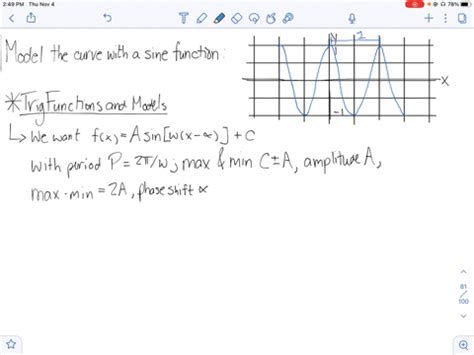 2:49 PM Thu Nov 4
78%
Model the curve with a sine function:
y
1
x
-1
*Trig Functions and Models
↳ We want f(x)=A sin[w(x-∝)]+C
with period P=2π/w; max & min C±A, amplitude A,
max-min=2A, phase shift ∝
81
100